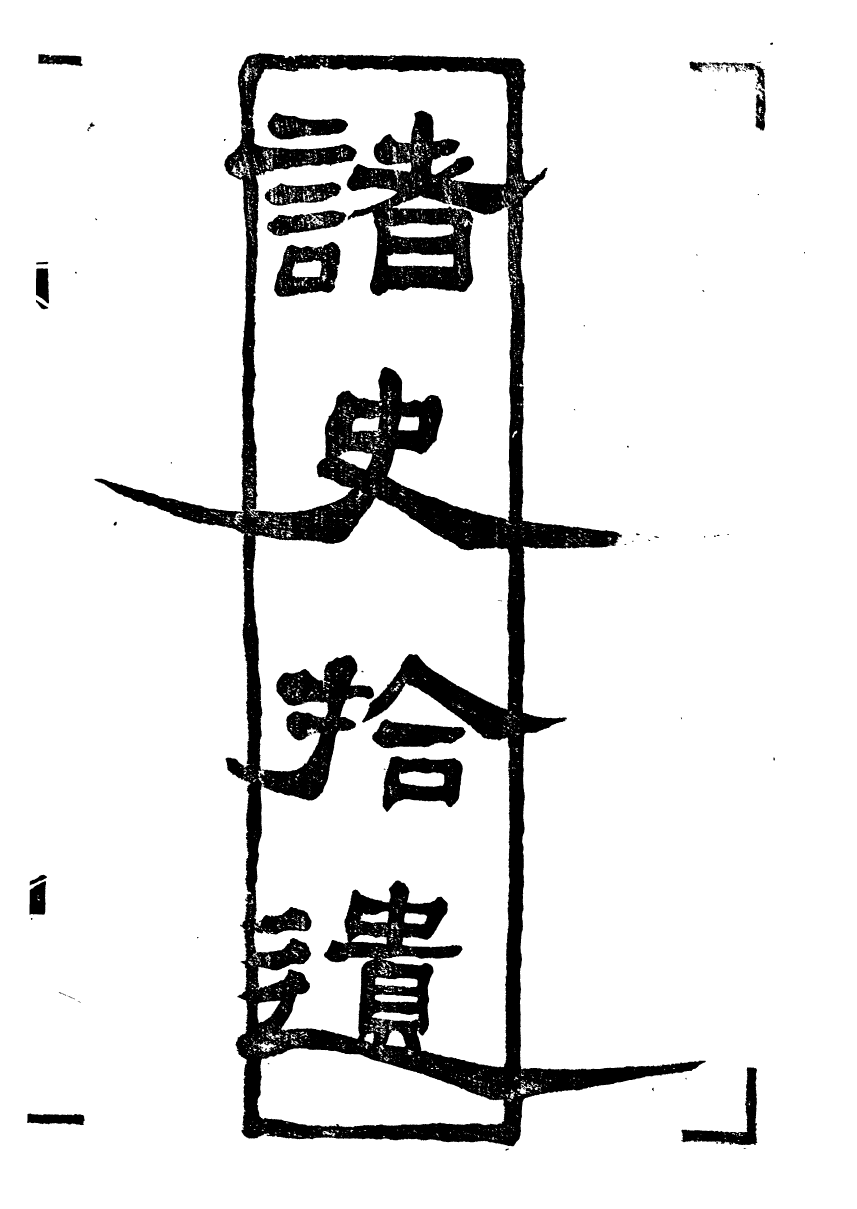 諸史拾遺